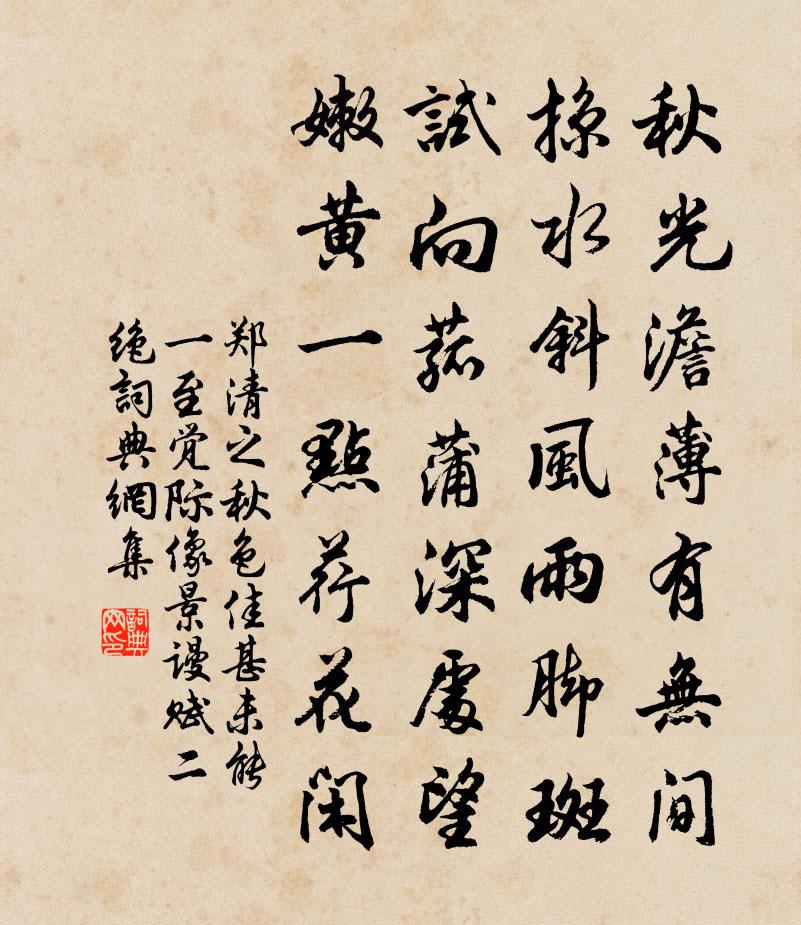 秋光澹薄有無間
掠水斜風雨脚斑
試向菰蒲深處望
嫩黄一點荷花闲
郑清之秋色佳甚未能
一至觉际像景谩赋二
绝詞典網集
詞典
网印